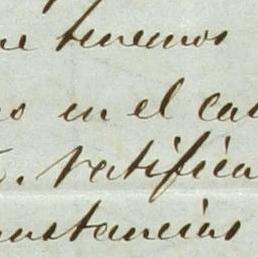 ue tenemos
o en el ca
. ratifica
unstancias